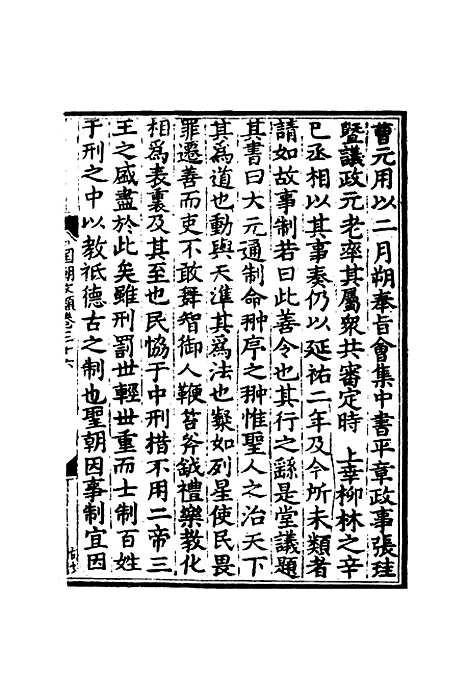 曹元用以二月朔奏旨會集中書平章政事張珪
暨議政元老率其屬衆共審定時　上幸柳林之辛
巳丞相以其事奏仍以延祐二年及今所未類者
請如故事制若曰此善令也其行之繇是堂議題
其書曰大元通制命翀序之翀惟聖人之治天下
其爲道也動與天準其爲法也粲如列星使民畏
罪遷善而吏不敢舞智御人鞭笞斧鉞禮樂教化
相爲表裏及其至也民協于中刑措不用二帝三
王之盛盡於此矣雖刑罰世輕世重而士制百姓
于刑之中以教祗德古之制也聖朝因事制宜因
國朝文類卷三十六